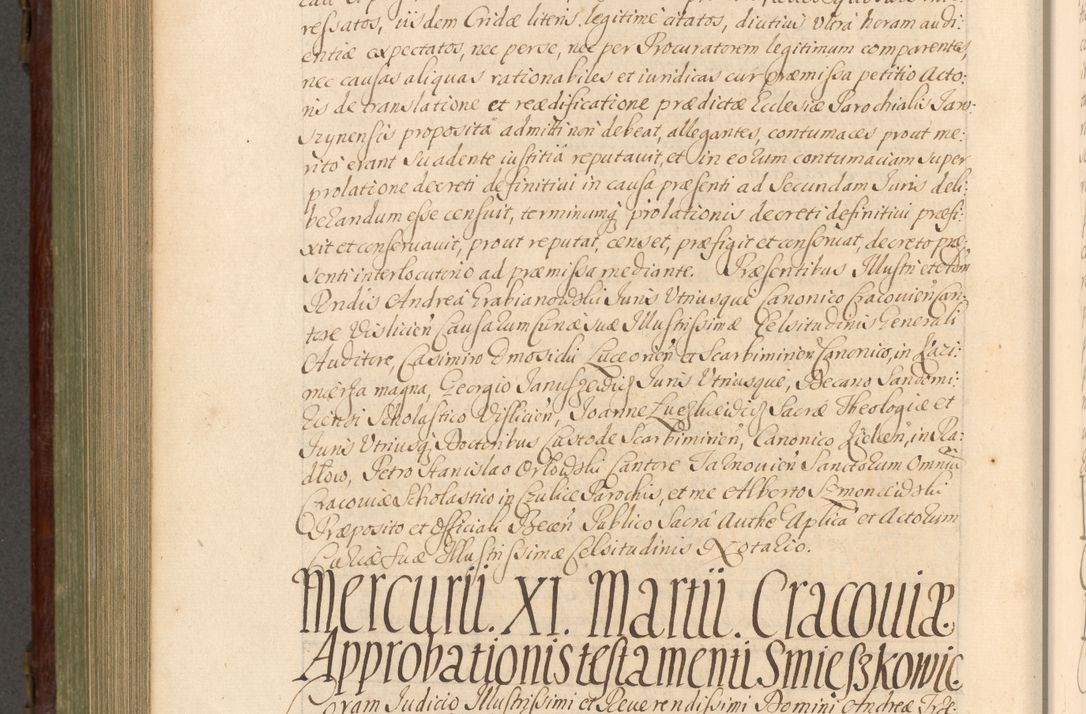 ressatos, iisdem Cridæ literis legitime citatos, diutius Ultra horam audi:
entiæ expectatos, nec perse, nec per Procuratorem legitimum comparentes,
nec causas aliquas rationabiles et iuridicas cur præmissa petitio Acto:
ris de translatione et reædificatione prædictæ Ecclesiæ Parochialis Jaro:
szynensis proposita admitti non debeat, allegantes, contumaces prout me:
rito erant Suadente iustitia reputauit, et in eorum contumaciam super
prolatione decreti definitiui in causa præsenti ad Secundam Juris deli:
berandum esse censuit, terminumq; prolationis decreti definitiui præfi:
xit et conseruauit, prout reputat, censet, præfigit et conseruat, decreto præ:
senti interlocutorio ad præmissa mediante. Præsentibus Illustri et
Rndis Andrea Grabianowski Juris Utriusque Canonico Cracouien Can:
tore Vislicien Causarum Curiæ suæ Illustrissimæ Celsitudinis Generali
Auditore, Casimiro Dmosicki Luceorien et Scarbimirien Canonico, in Kazi:
mierza magna, Georgio Januszewicz Juris Utriusque, Decano Sandomi:
rien Scholastico Vislicien, Joanne Sacræ Theologiæ et
Juris Utriusq; Doctoribus Custode Scarbimirien, Canonico Kielcen, in Ra:
dłow, Petro Stanislao Orłowski Cantore Tarnouien Sanctorum Omniu
Cracouiæ Scholastico in Czulice Parochis, et me Alberto Szmoniewski
Præposito et Officiali Becen Publico Sacra Authe Aplica et Actorum
Curiæ Suæ Illustrissimæ Celsitudinis Notario.
Mercurii. XI. Martii. Cracouiæ.
Approbationis testamenti Smieszkowic
Coram Judicio Illustrissimi et Reuerendissimi Domini Andreæ Trze: